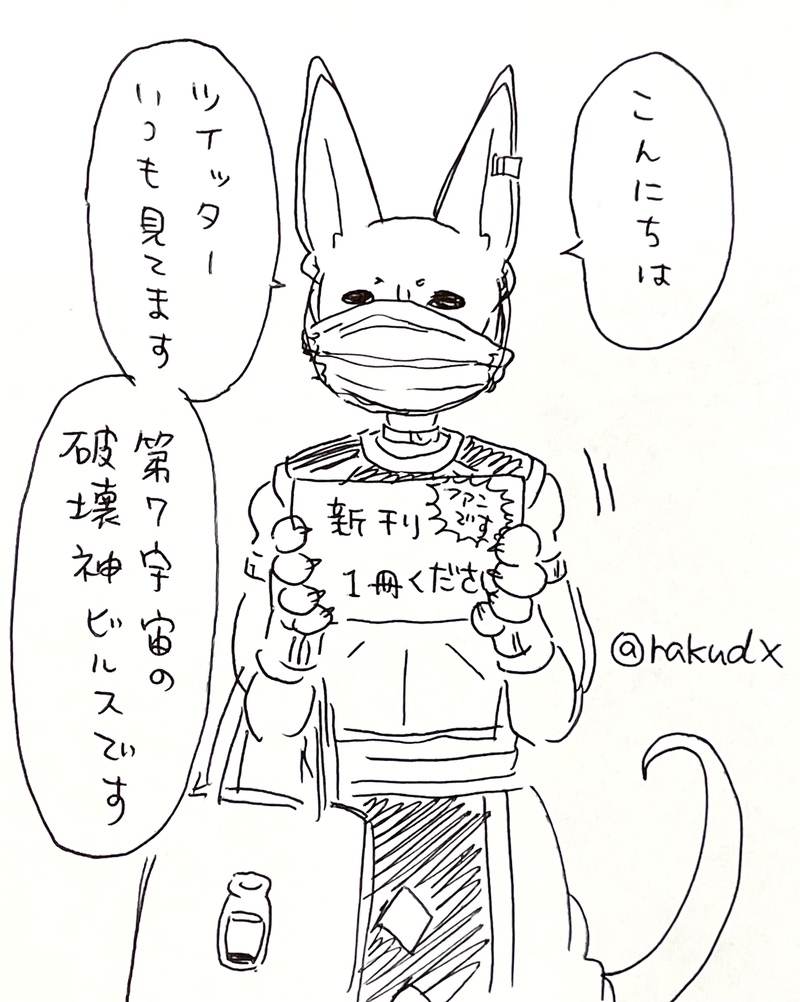 こんにちは
ツイッター
いつも見てます
第7宇宙の
破壊神ビルスでいす
ファン
です
新刊
1冊くださ
@rakudx